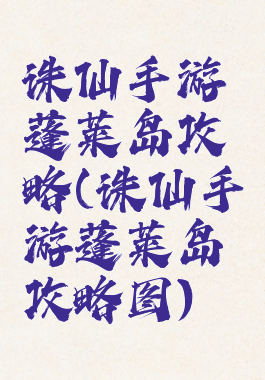 诛仙手游
蓬莱岛攻
略(诛仙手
游蓬莱岛
攻略图)